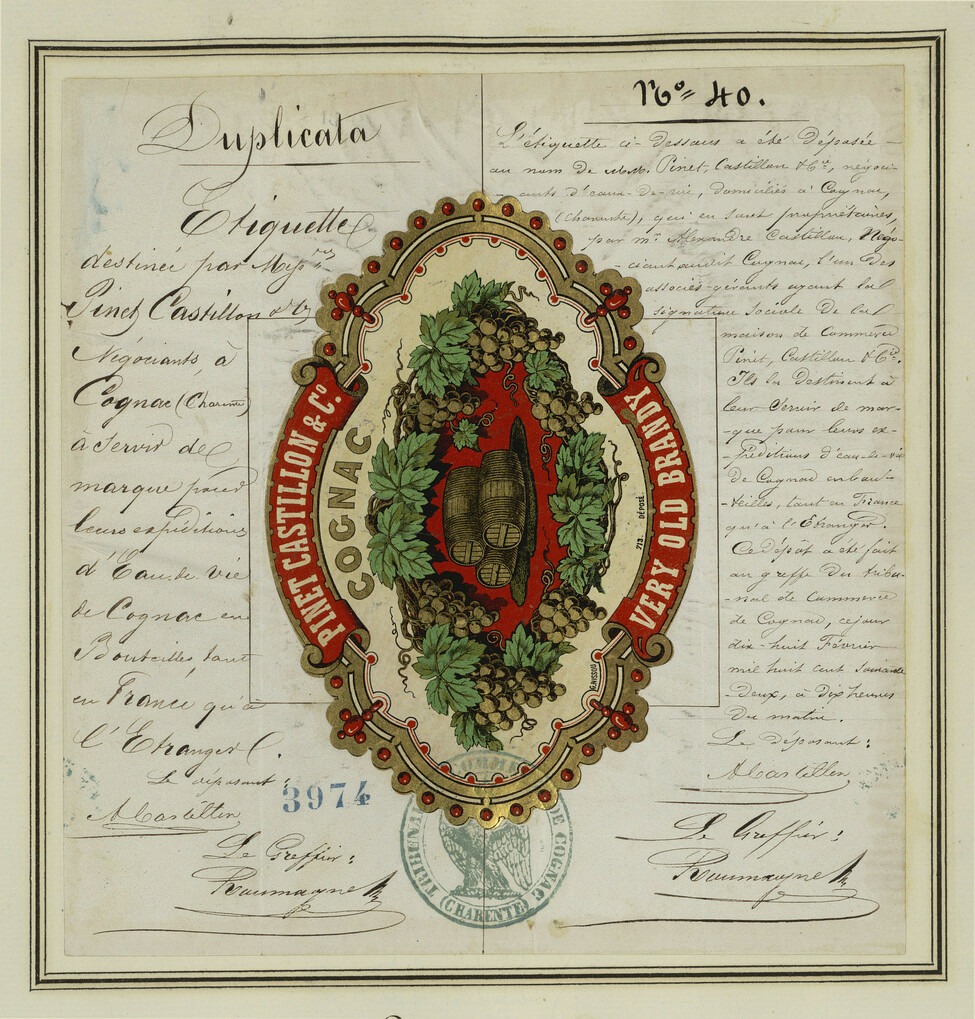 Duplicata
Etiquette
destinée par Mess
Pinet Castillon & Cie
Négociants, à
Cognac (Charente)
à Servir de
marque pour
leurs expéditions
d'Eau de vie
de Cognac en
Bouteilles, tant
en France qu'à
l'Etranger.
Le déposant :
ACastillon
Le Greffier :
Roumagne
3974
No= 40.
L'étiquette ci-dessus a été déposée
au nom de MM. Pinet, Castillon & Cie, négoci-
-ants d'eaux-de-vie, domiciliés à Cognac,
(Charente), qui en sont propriétaires,
par Mr Alexandre Castillon, Négo-
-ciant audit Cognac, l'un des
associés-gérants ayant la
signature Sociale de la
maison de Commerce
Pinet, Castillon & Cie.
Ils la destinent à
leur servir de mar-
-que pour leurs ex-
-péditions d'eau-de-vie
de Cognac en bou-
-teilles, tant en France
qu'à l'Etranger.
Ce dépôt a été fait
au greffe du tribu-
-nal de Commerce
de Cognac, ce jour
dix-huit Février
mil huit cent soixante
-deux, à dix heures
du matin.
Le déposant :
ACastillon
Le Greffier :
Roumagne
PINET CASTILLON & Co.
COGNAC
VERY OLD BRANDY
713. DÉPOSÉ.
TRIBUNAL DE COGNAC
(CHARENTE)